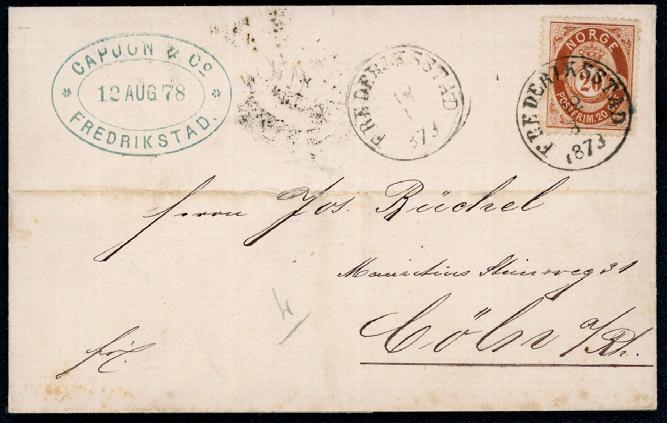 CAPJON & Co
12 AUG 78
FREDRIKSTAD.
FREDERIKSSTAD
1873
NORGE
20
POSTFRIM. 20
FREDERIKSSTAD
1873
Herrn Jos. Büchel
Mauritius Steinweg 31
Cöln a/Rh.